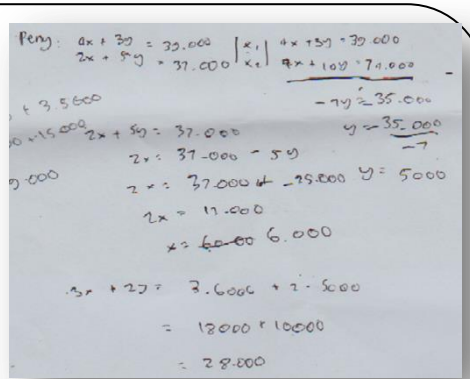 Peny: 4x + 3y = 39.000 | x1 | 4x + 3y = 39.000
2x + 5y = 37.000 | x2 | 4x + 10y = 74.000
-7y = -35.000
y = -35.000
-7
y = 5000
+ 3.5000
15.000
9.000
2x + 5y = 37.000
2x = 37.000 - 5y
2x = 37.000 - 25.000
2x = 12.000
x = 6.000
3x + 2y = 3.6000 + 2.5000
= 18000 + 10000
= 28.000